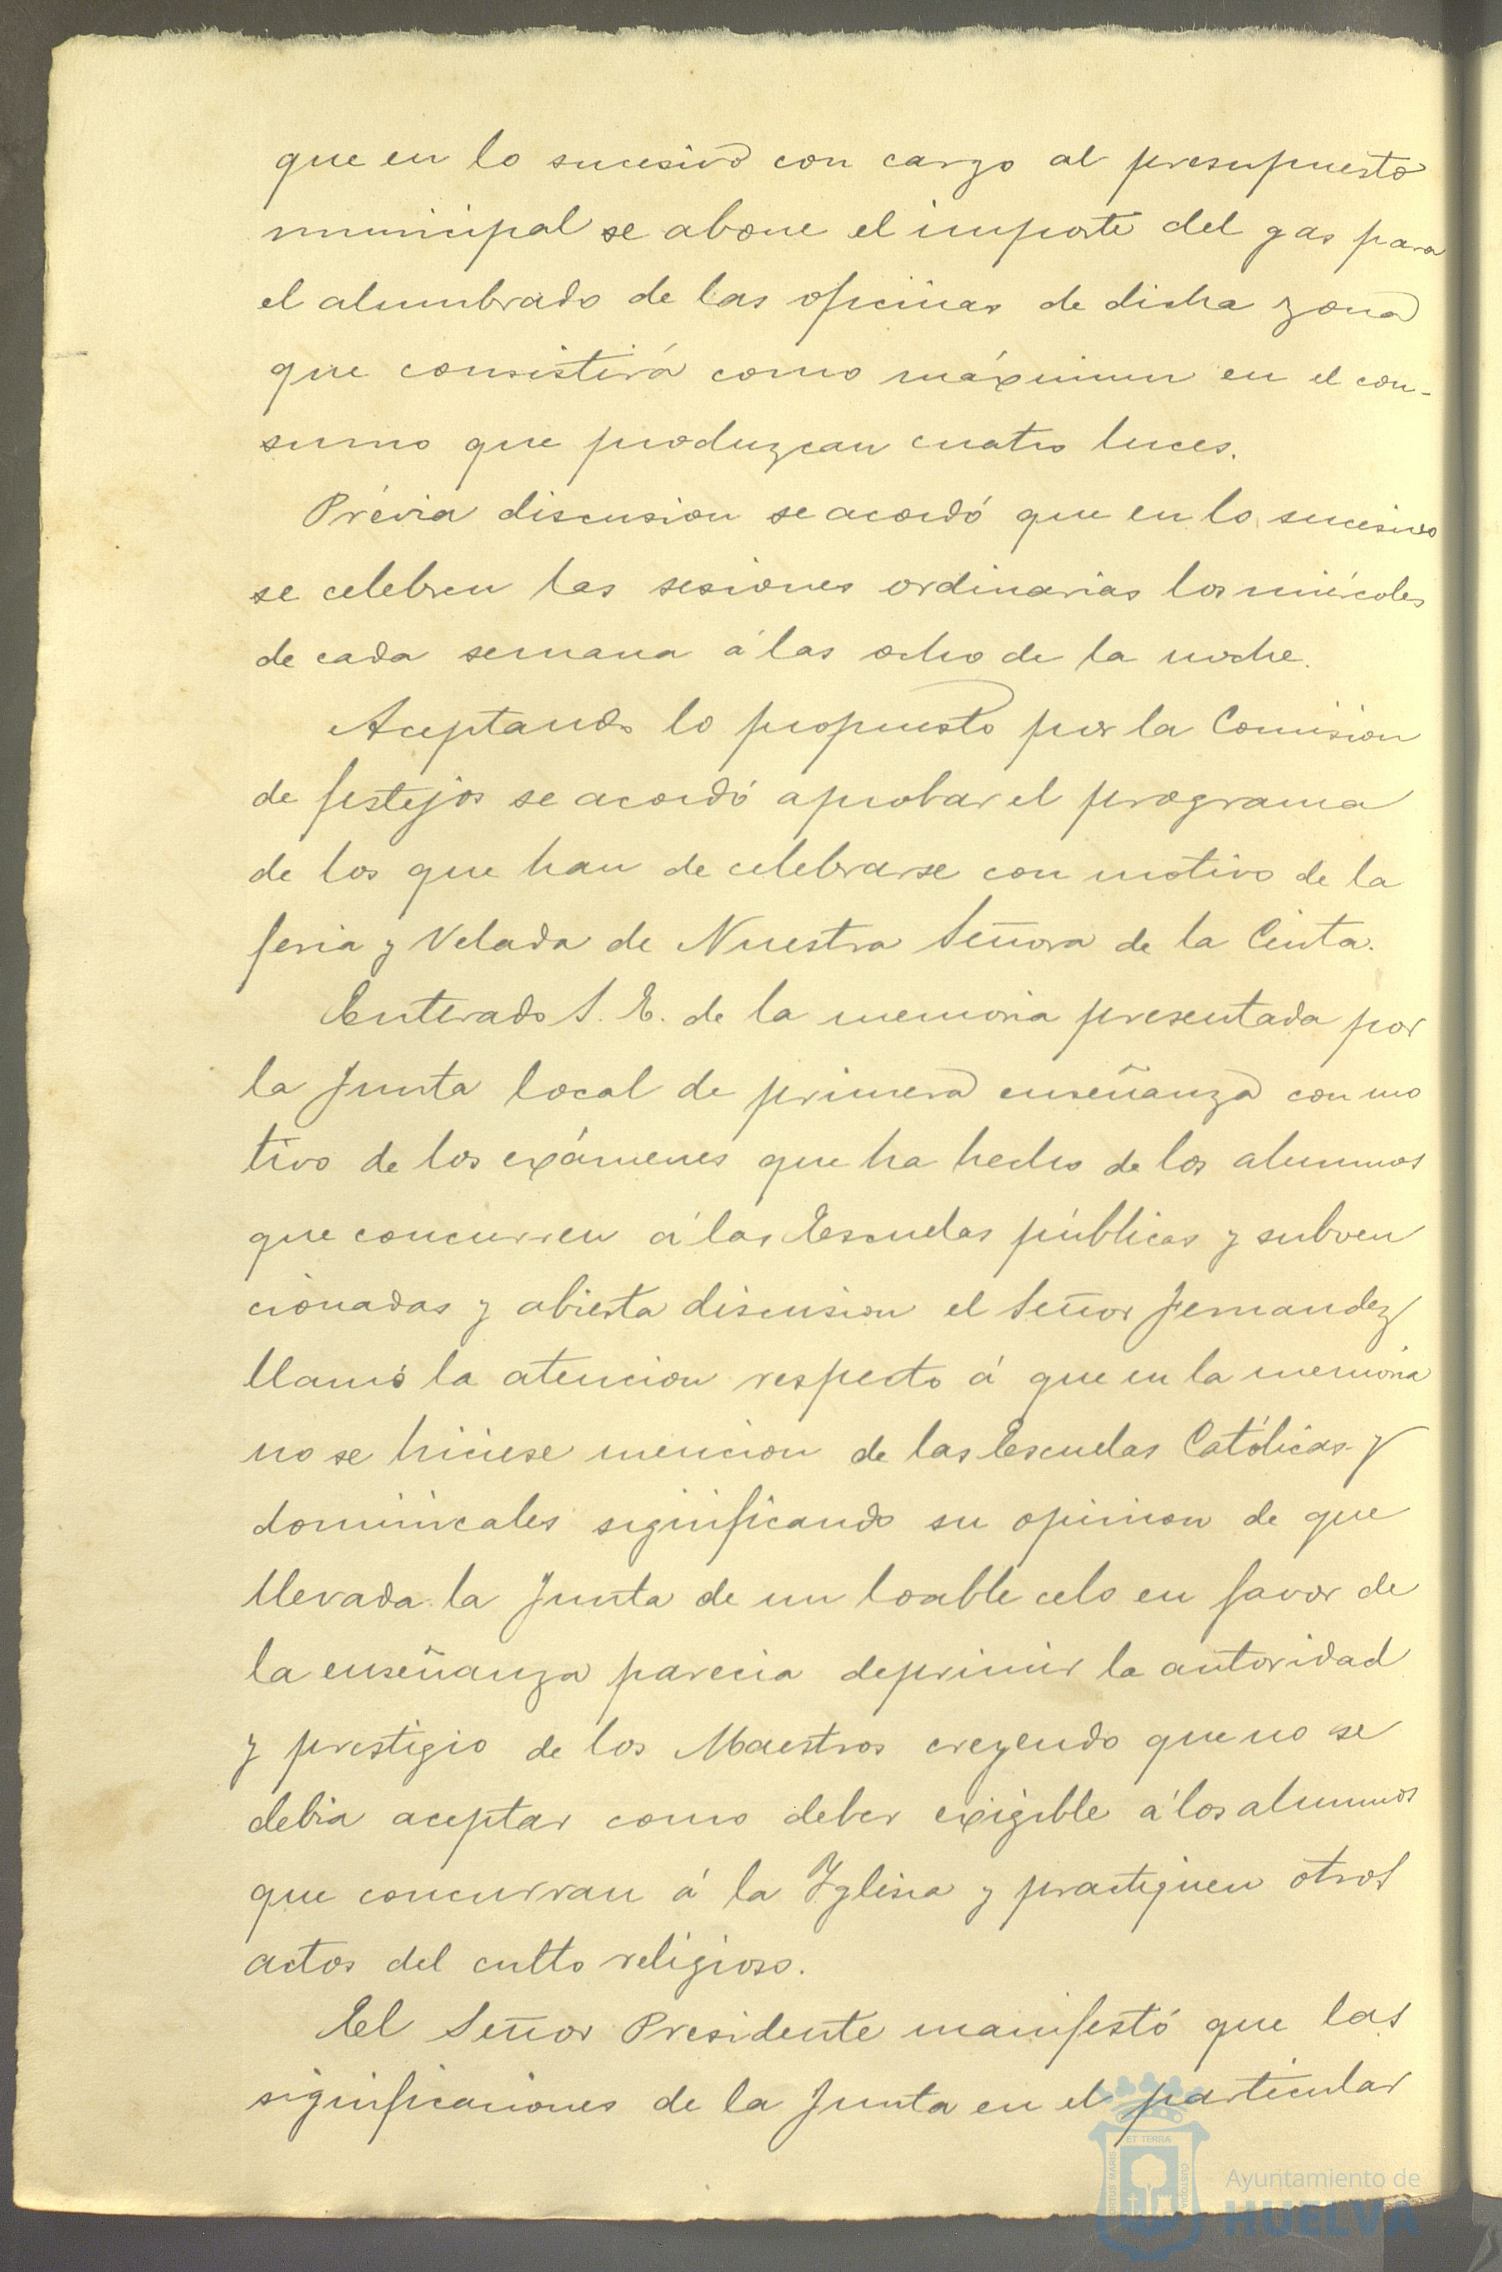 que en lo sucesivo con cargo al presupuesto
municipal se abone el importe del gas para
el alumbrado de las oficinas de dicha zona
que consistirá como máximum en el con-
sumo que produzcan cuatro luces.
Prévia discusion se acordó que en lo sucesivo
se celebren las sesiones ordinarias los miércoles
de cada semana á las ocho de la noche.
Aceptando lo propuesto por la Comision
de festejos se acordó aprobar el programa
de los que han de celebrarse con motivo de la
feria y Velada de Nuestra Señora de la Cinta.
Enterado S. E. de la memoria presentada por
la Junta local de primera enseñanza con mo
tivo de los exámenes que ha hecho de los alumnos
que concurren á las Escuelas públicas y subven
cionadas y abierta discusion el Señor Fernandez
llamó la atencion respecto á que en la memoria
no se hiciese mencion de las Escuelas Católicas y
dominicales significando su opinion de que
llevada la Junta de un loable celo en favor de
la enseñanza parecia deprimir la autoridad
y prestigio de los Maestros creyendo que no se
debia aceptar como deber exigible á los alumnos
que concurran á la Iglesia y practiquen otros
actos del culto religioso.
El Señor Presidente manifestó que las
significaciones de la Junta en el particular
ET TERRA
PORTUS MARIS
CUSTODIA
Ayuntamiento de
HUELVA